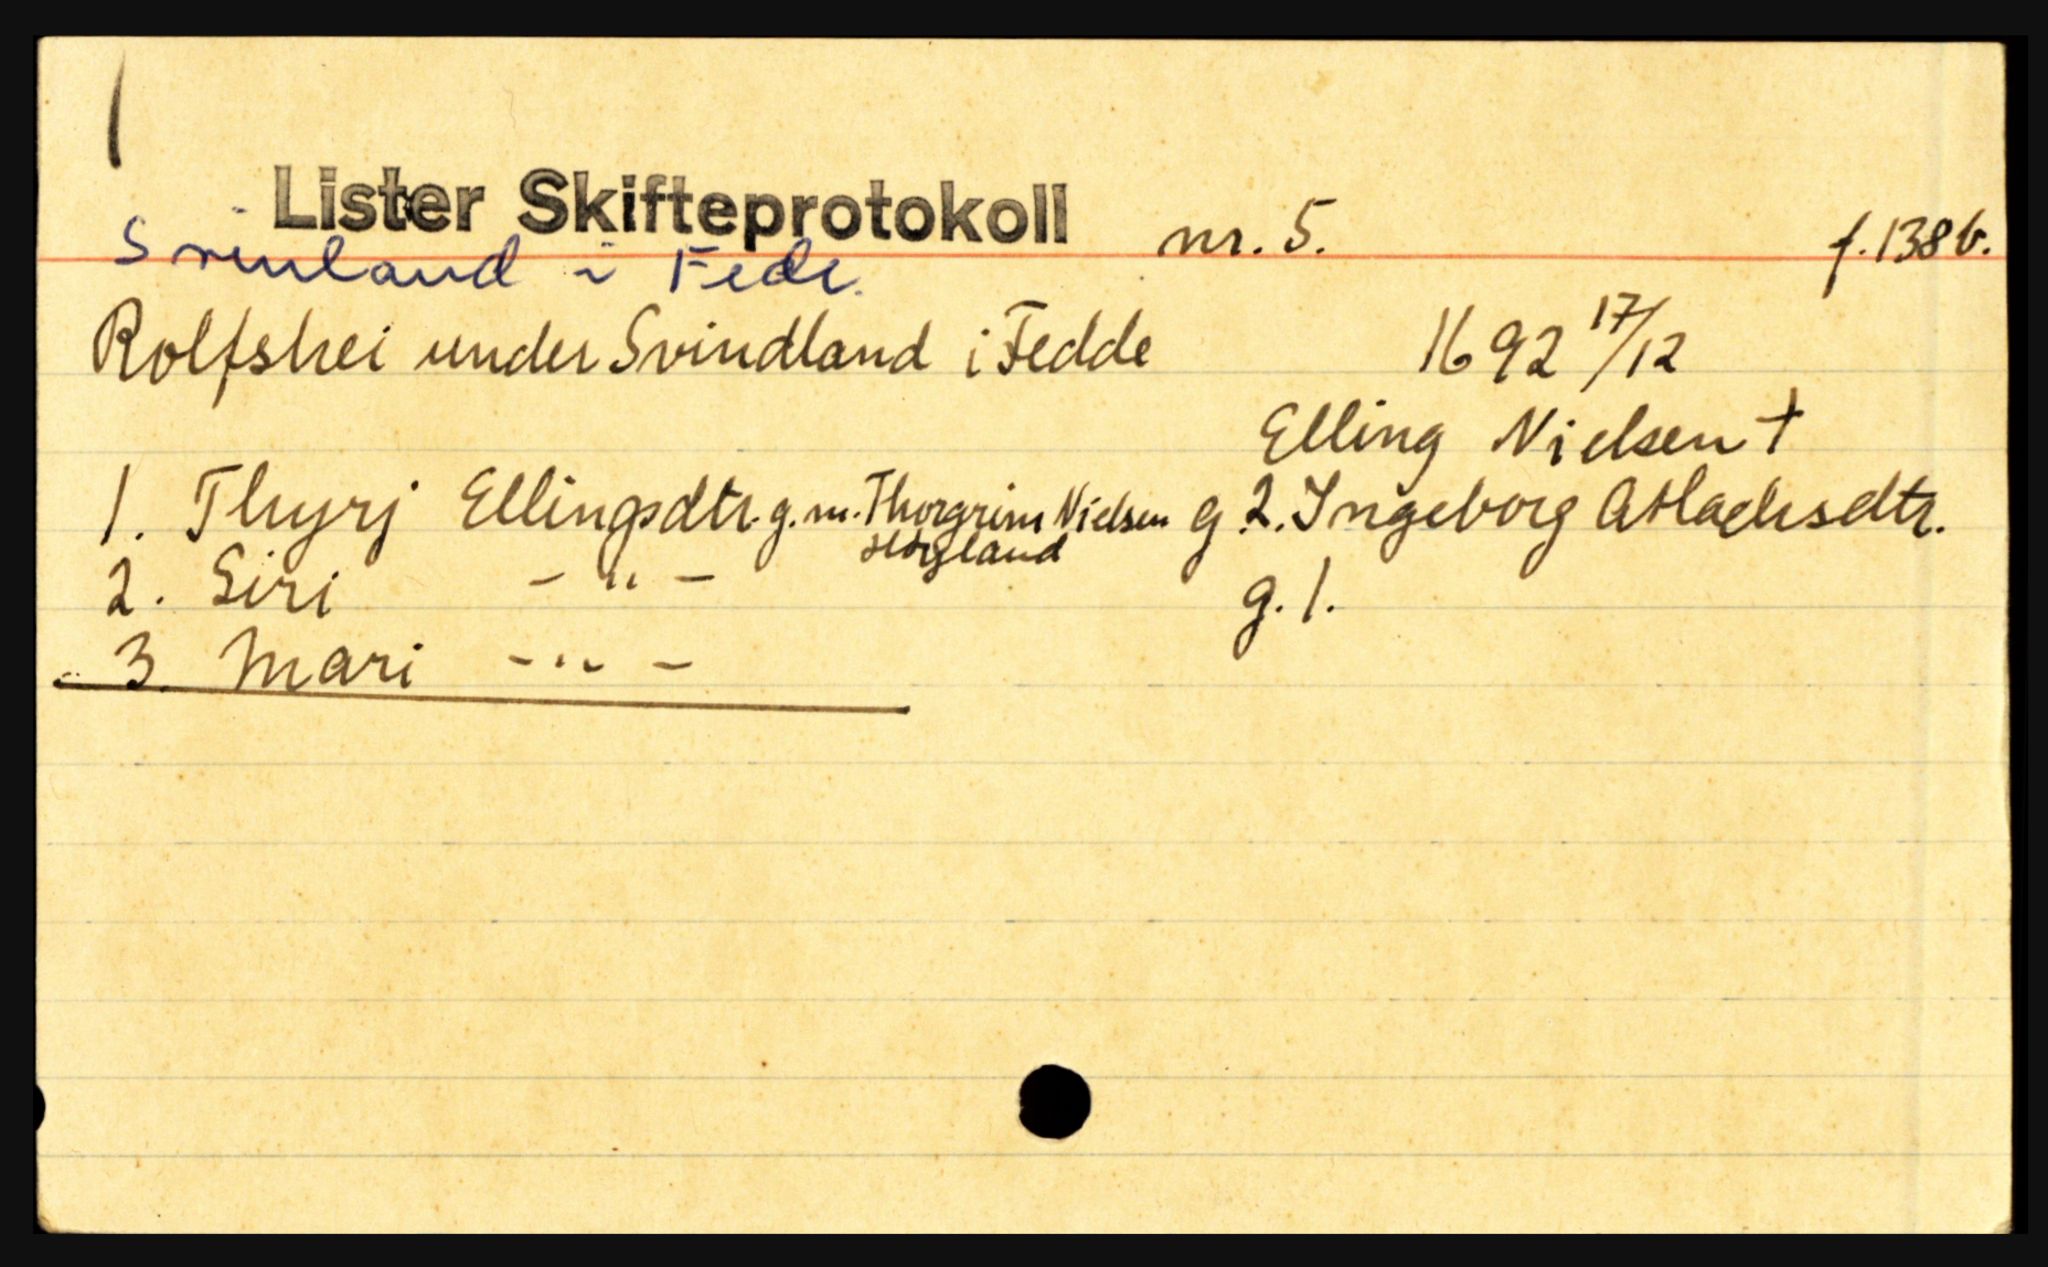 Lister Skifteprotokoll nr. 5. f. 138b.
Svinland i Fede.
Rolfshei under Svindland i Fedde 1692 17/12
Elling Nielsen †
1. Thyrj Ellingsdtr. g.m. Thorgrim Nielsen g 2. Ingeborg Atlachsdtr.
2. Siri - " - g. 1.
3. Mari - " -